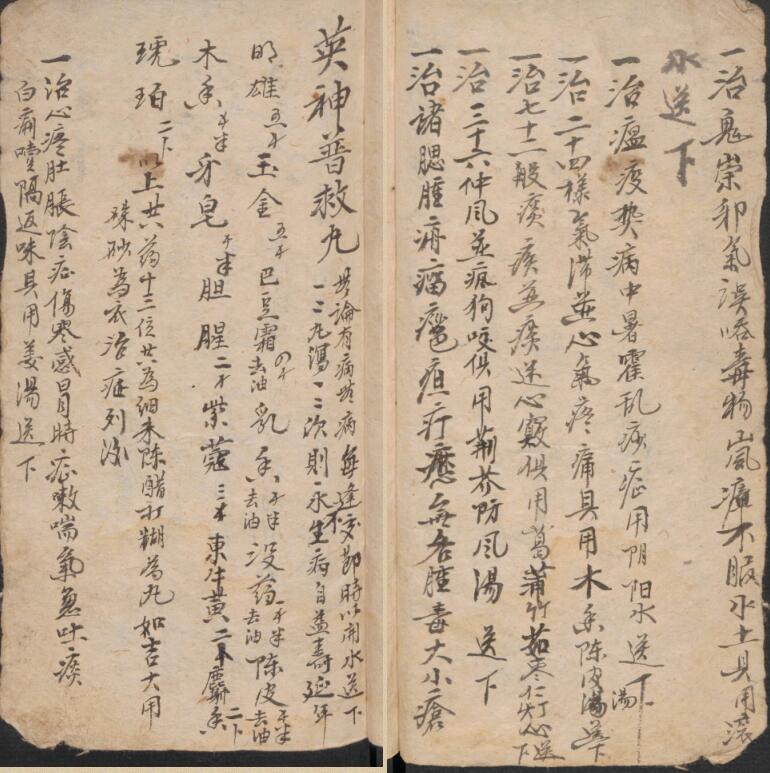 一治鬼祟邪氣誤吃毒物嵐瘴不服水土具用滚
水送下
一治瘟疫熱病中暑霍乱痧症用阴阳水送下
一治二十四樣氣滯並心氣疼痛具用木香陳皮湯送下
一治七十二般痰疾並痰迷心竅俱用菖蒲竹茹枣仁灯心送下
一治三十六仲風並疯狗咬俱用荆芥防风湯送下
一治諸腮腫痈瘤疽疔無名腫毒大小瘡
英神普救丸 無論有病無病每逢交節時以開水送下
一二九瀉一二次則永生病自益壽延年
明雄五个 玉金五个 巴豆霜去油四个 乳香去油个半 没药去油一个半 陈皮去油个半
木香个半 牙皂个半 胆腥二个 紫蔻三个 東牛黃二个 麝香二下
琥珀二下 以上共药十三位共為細末陈醋打糊為丸如吉大用
硃砂為衣治症列后
一治心疼肚脹陰症傷寒感冒時症嗽喘氣急吐痰
白痢噎隔返味具用姜湯送下